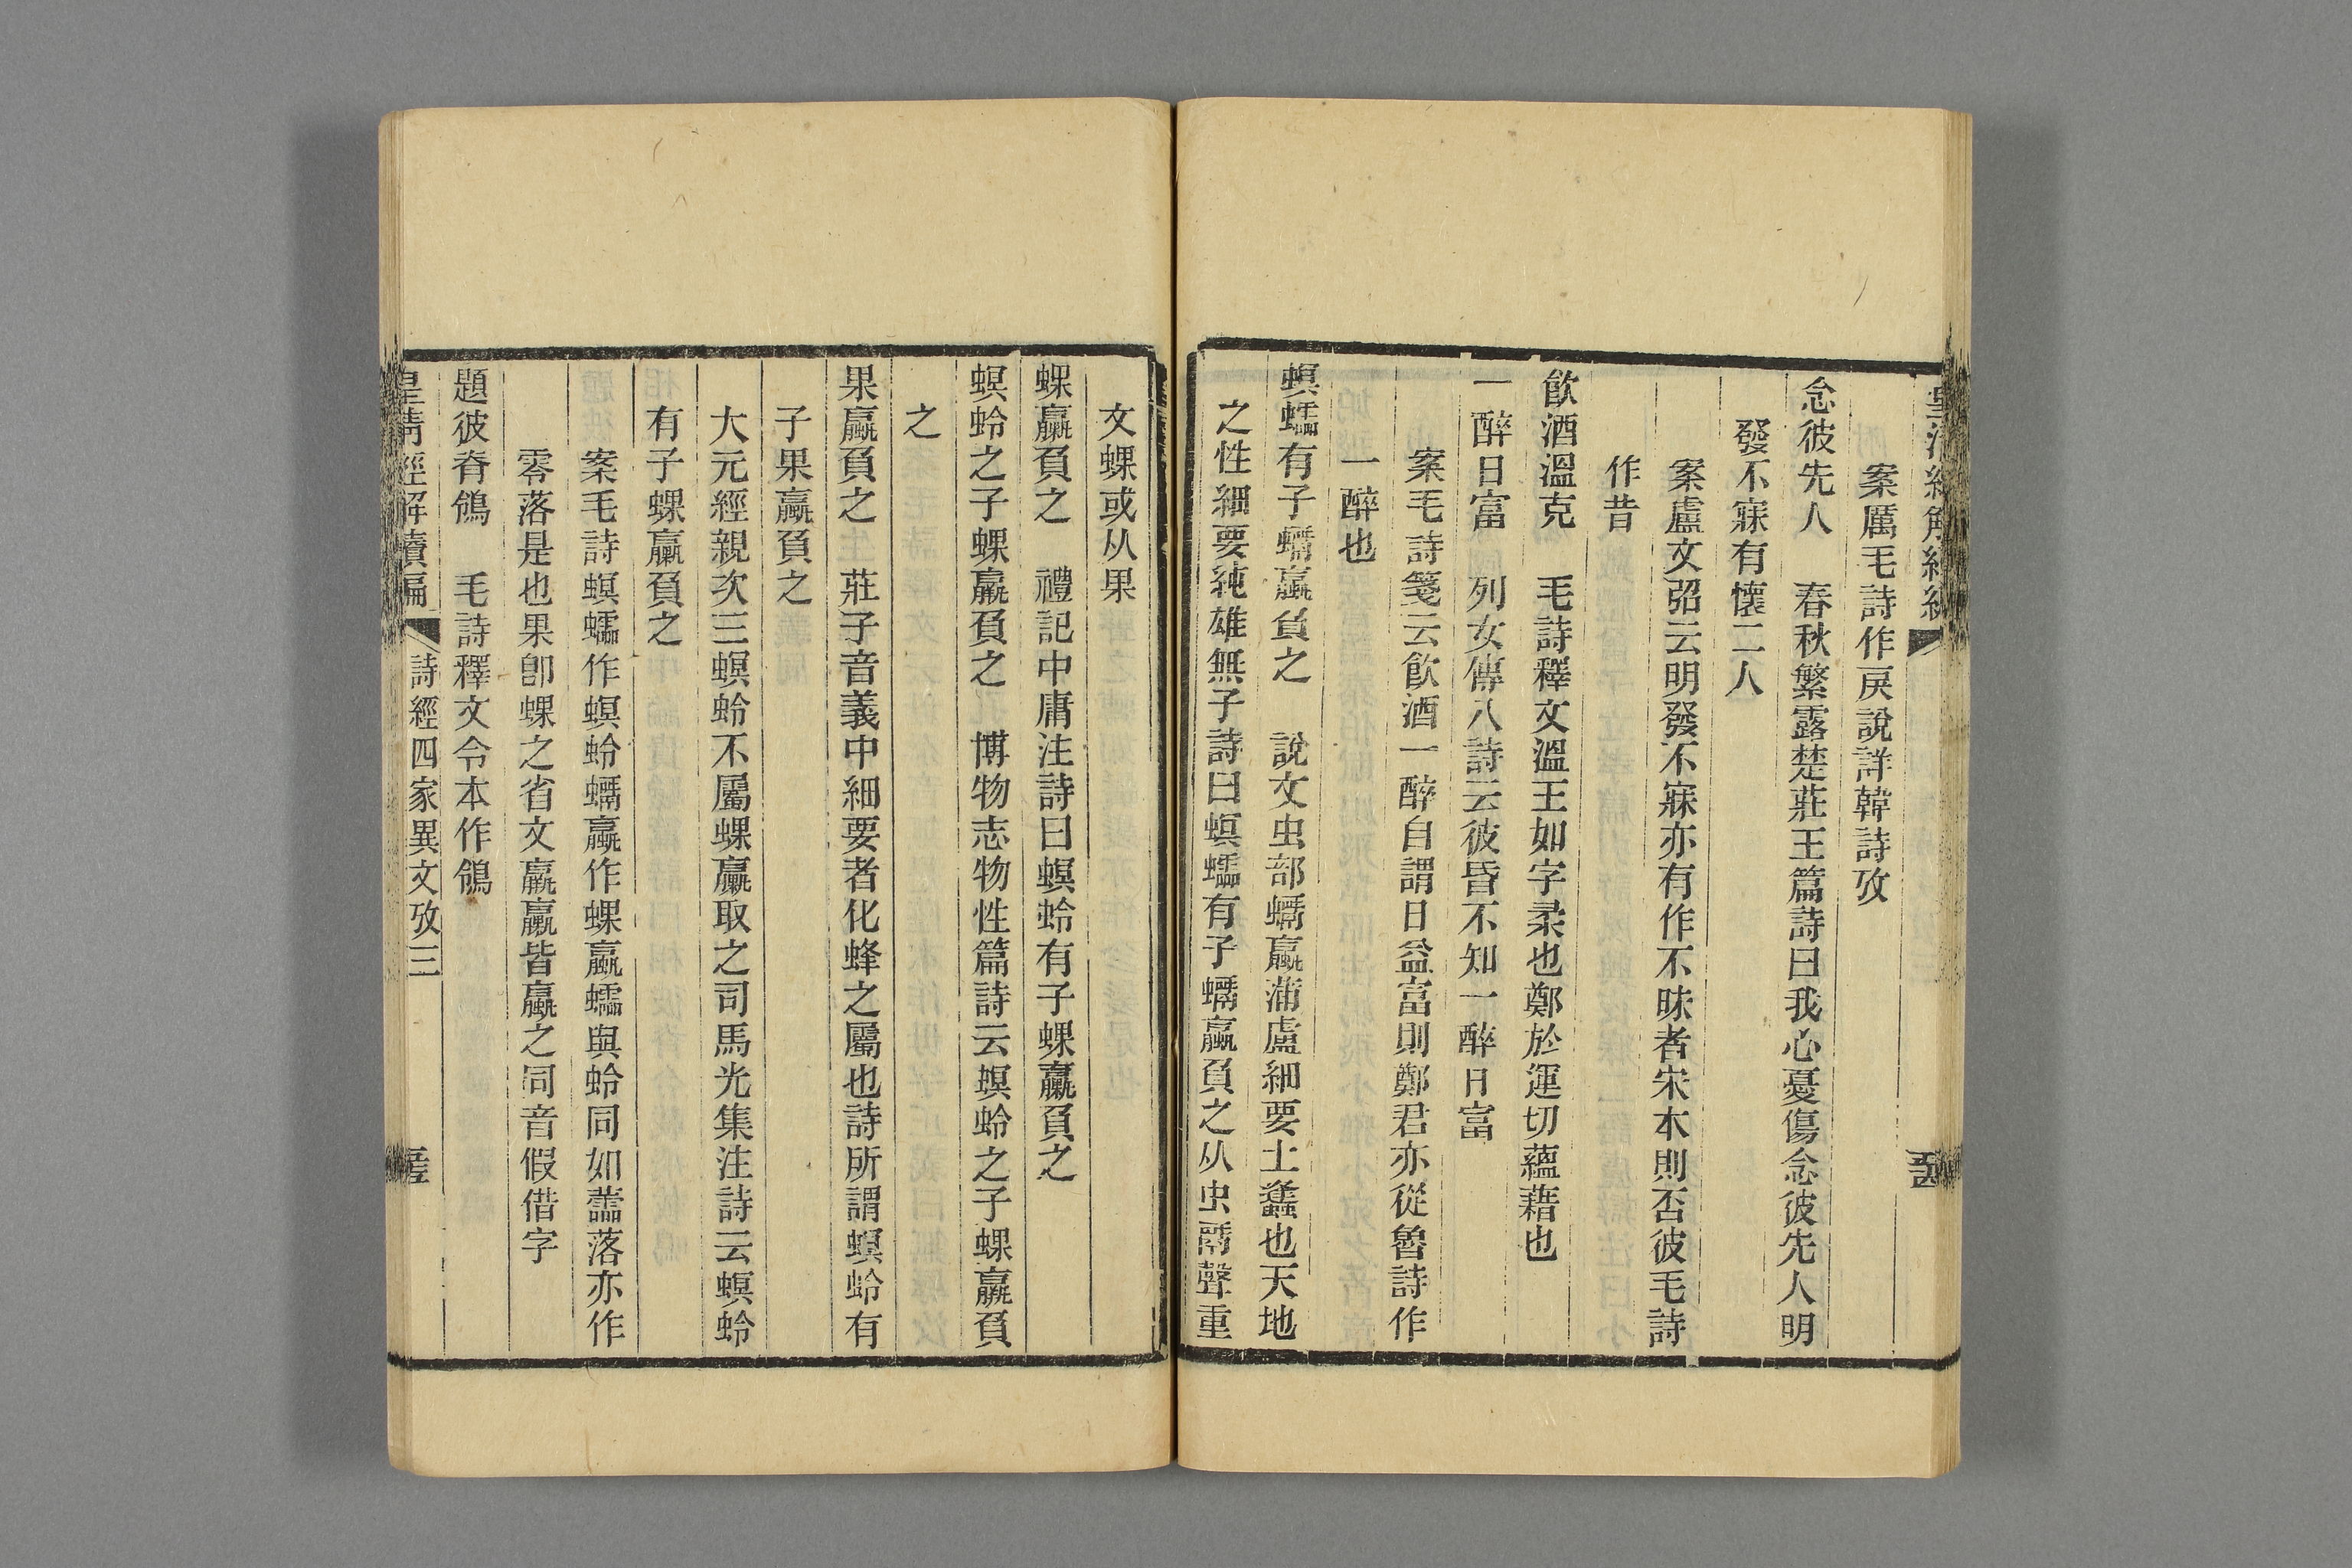 案厲毛詩作戾說詳韓詩攷
念彼先人　春秋繁露楚莊王篇詩曰我心憂傷念彼先人明
發不寐有懷二人
案盧文弨云明發不寐亦有作不昧者宋本則否彼毛詩
作昔
飮酒溫克　毛詩釋文溫王如字柔也鄭於運切蘊藉也
一醉日富　列女傳八詩云彼昏不知一醉日富
案毛詩箋云飮酒一醉自謂日益富則鄭君亦從魯詩作
一醉也
螟蠕有子蠣蠃負之　說文虫部蠣蠃蒲盧細要土蠭也天地
之性細要純雄無子詩曰螟蠕有子蠣蠃負之从虫𠩺聲重
文蜾或从果
蜾蠃負之　禮記中庸注詩曰螟蛉有子蜾蠃負之
螟蛉之子蜾蠃負之　博物志物性篇詩云螟蛉之子蜾蠃負
之
果蠃負之　莊子音義中細要者化蜂之屬也詩所謂螟蛉有
子果蠃負之
大元經親次三螟蛉不屬蜾蠃取之司馬光集注詩云螟蛉
有子蜾蠃負之
案毛詩螟蠕作螟蛉蠣蠃作蜾蠃蠕與蛉同如蘦落亦作
零落是也果卽蜾之省文蠃蠃皆蠃之同音假借字
題彼脊鴒　毛詩釋文令本作鴒
皇淸經解續編　詩經四家異文攷三